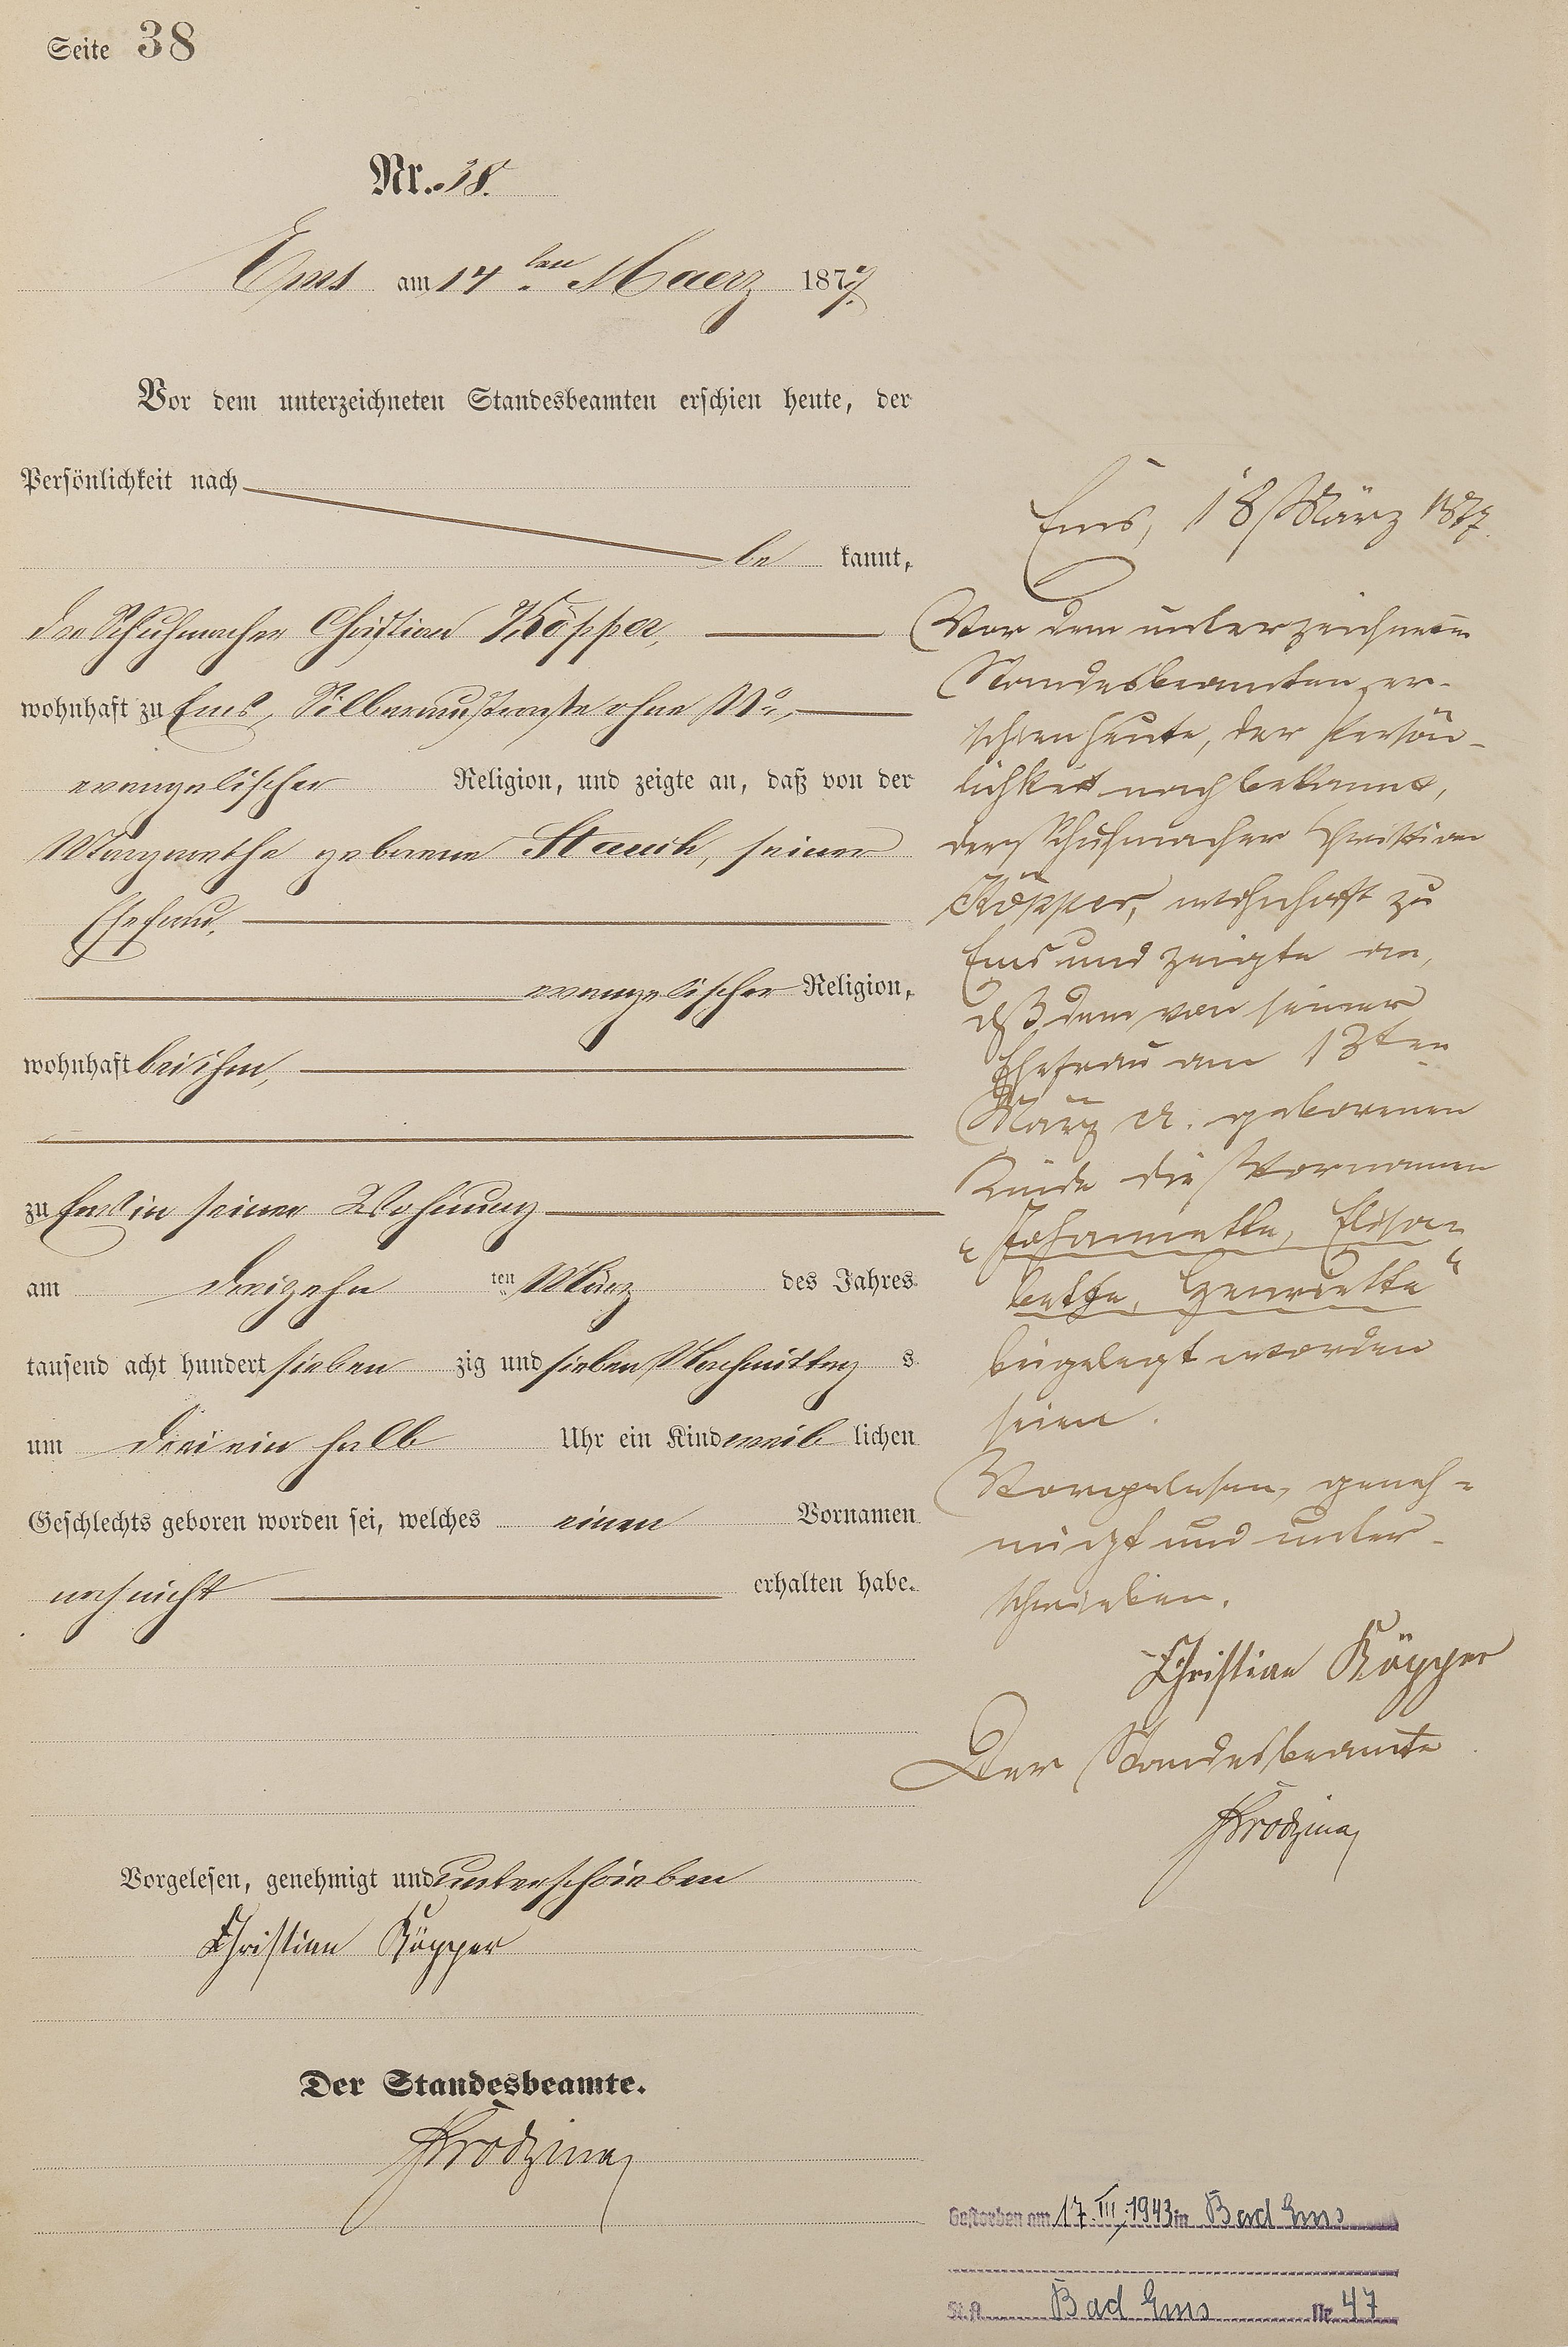 Seite 38
Nr. 38.
Ems am 14ten Maerz 1877.
Vor dem unterzeichneten Standesbeamten erschien heute, der
Persönlichkeit nach
be kannt,
der Schuhmacher Christian Köpper,
wohnhaft zu Ems, Silberaustraße ohne No,
evangelischer Religion, und zeigte an, daß von der
Margarethe geborene Stauch, seiner
Ehefrau,
evangelischer Religion,
wohnhaft bei ihm,
zu Ems in seiner Wohnung
am dreizehn ten März des Jahres
tausend acht hundert sieben zig und sieben Nachmittag s
um drei ein halb Uhr ein Kind weib lichen
Geschlechts geboren worden sei, welches einen Vornamen
noch nicht erhalten habe.
Vorgelesen, genehmigt und unterschrieben
Christian Köpper
Der Standesbeamte.
Ems, 18 März 1877.
Vor dem unterzeichneten
Standesbeamten er-
schien heute, der Persön-
lichkeit nach bekannt,
der Schuhmacher Christian
Köpper, wohnhaft zu
Ems und zeigte an,
daß dem von seiner
Ehefrau am 13ten
März cr. geborenen
Kinde die Vornamen
"Johannette, Elisa-
bethe, Henriette"
beigelegt worden
seien.
Vorgelesen, geneh-
migt und unter-
schrieben.
Christian Köpper
Der Standesbeamte
Gestorben am 17. III. 1943 in Bad Ems
St.A. Bad Ems Nr. 47